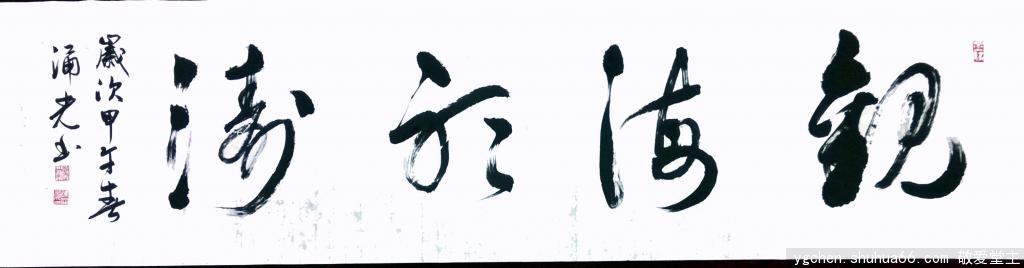 觀海聽濤
歲次甲午春
涌光书
ygchen.shuhua66.com 敬爱堂主